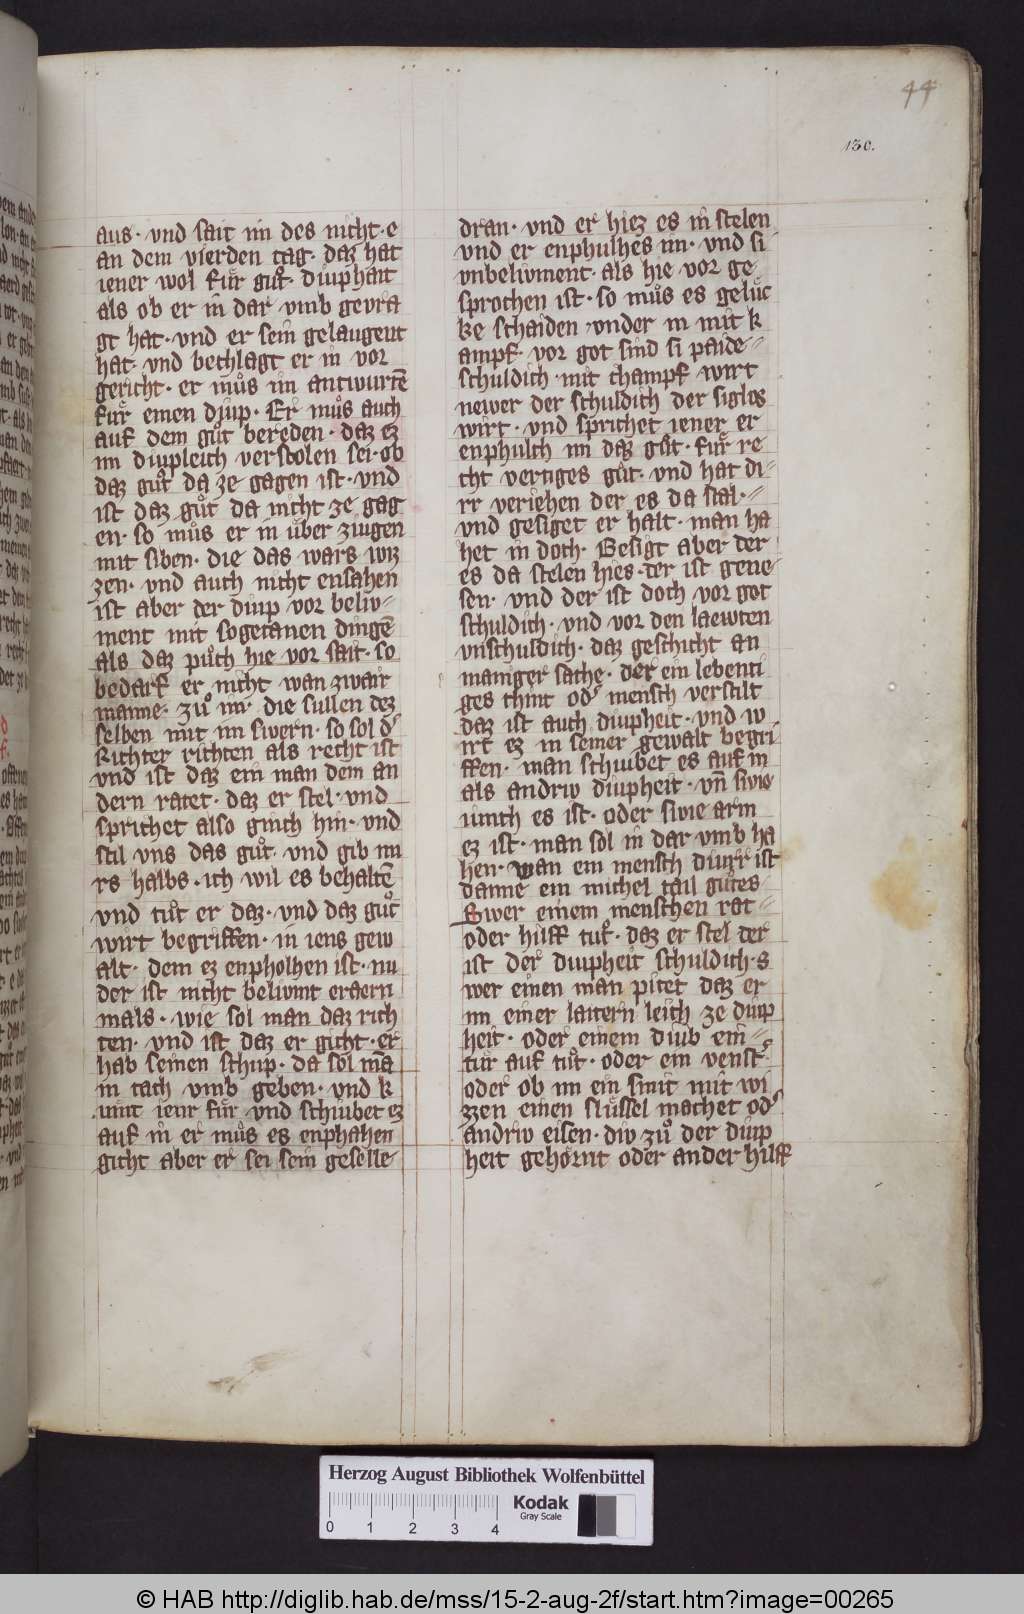 44
130.
aus· vnd sait im des nicht· e
an dem vierden tag· daz hat
iener wol fuͤr guͦt· diuphait
als ob er in dar vmb gevra
gt hat· vnd er sein gelaugent
hat· vnd bechlagt er in vor
gericht· er muͦs im antwurtē
fuͤr einen djup· Er muͦs auch
auf dem guͦt bereden· daz ez
im diupleich verstolen sei· ob
daz guͦt da ze gagen ist· vnd
ist daz guͦt da nicht ze gag
en· so muͦs er in uͤber ziugen
mit siben· die das wars wiz
zen· vnd auch nicht ensahen
ist aber der diup vor beliv-
ment mit sogetanen dingē
als daz puͦch hie vor sait· so
bedarf er nicht wan zwair
manne· zuͦ im· die sullen dez
selben mit im swern· so sol d͛
Richter richten als recht ist
vnd ist daz ein man dem an
dern ratet· daz er stel· vnd
sprichet also ginch hin· vnd
stil vns das guͦt· vnd gib mi
rs halbs· ich wil es behaltē
vnd tuͦt er daz· vnd daz guͦt
wirt begriffen· in iens gew
alt· dem ez enpholhen ist· nu
der ist nicht belivmt erdern
mals· wie sol man daz rich
ten· vnd ist daz er gicht· er
hab seinen schup· da sol mā
in tach vmb geben· vnd k
umt ienr fuͤr vnd schiubet ez
auf in er muͦs es enphahen
gicht aber er sei sein geselle
dran· vnd er hiez es in stelen
vnd er enphulhes im· vnd si
vnbelivment· als hie vor ge
sprochen ist· so muͦs es geluͤc
ke schaiden vnder in mit k
ampf· vor got sind si paide-
schuldich· mit champf wirt
newer der schuldich der siglos
wirt· vnd sprichet iener er
enphulch im daz guͦt· fuͤr re
cht vertiges guͦt· vnd hat di-
rr veriehen der es da stal·
vnd gesiget er halt· man ha
het in doch· Besigt aber der
es da stelen hies· der ist gene
sen· vnd der ist doch vor got
schuldich· vnd vor den laewten
vnschuldich· daz geschicht an
maniger sache· der ein lebenti
ges thint od͛ mensch verstilt
daz ist auch diupheit· vnd w
irt ez in seiner gewalt begri
ffen· man schiubet es auf in
als andriv diupheit· vn̄ swie
iunch es ist· oder swie arm
ez ist· man sol in dar vmb ha
hen· wan ein mensch diurr ist
danne ein michel tail guͦtes
Swer einem menschen rat-
oder hilff tuͦt· daz er stel der
ist der diupheit schuldich· s
wer einen man pitet daz er
im einer laitern leich ze diup
heit· oder einem diub ein-
tuͤr auf tuͦt· oder ein venst͛
oder ob im ein smit mit wi
zzen einen sluͤssel machet od͛
andriv eisen· div zuͦ der diup
heit gehoͤrnt oder ander hilff
Herzog August Bibliothek Wolfenbüttel
0 1 2 3 4
Kodak
Gray Scale
© HAB http://diglib.hab.de/mss/15-2-aug-2f/start.htm?image=00265